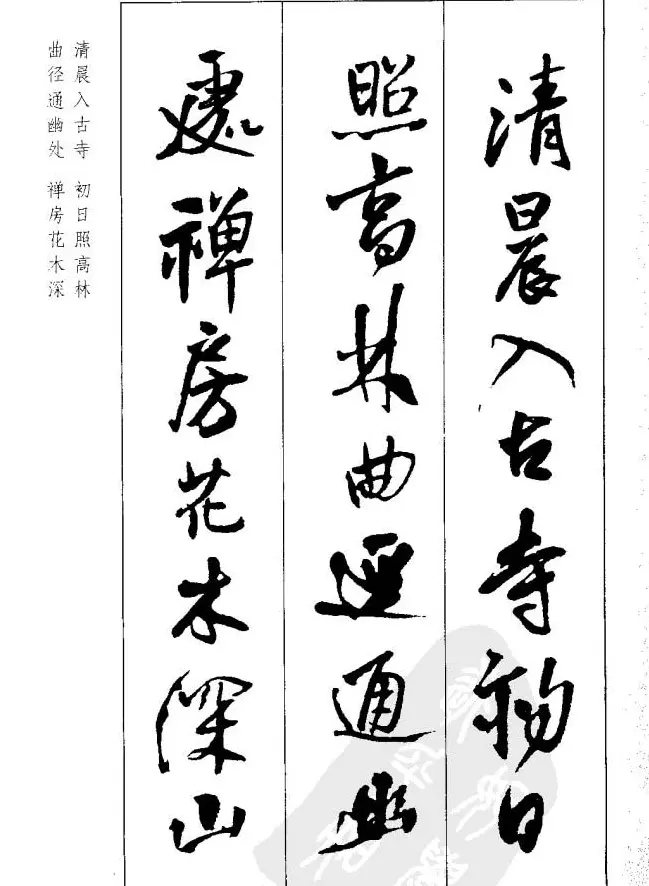 清晨入古寺初日
照高林曲逕通幽
處禪房花木深山
清晨入古寺 初日照高林
曲径通幽处 禅房花木深